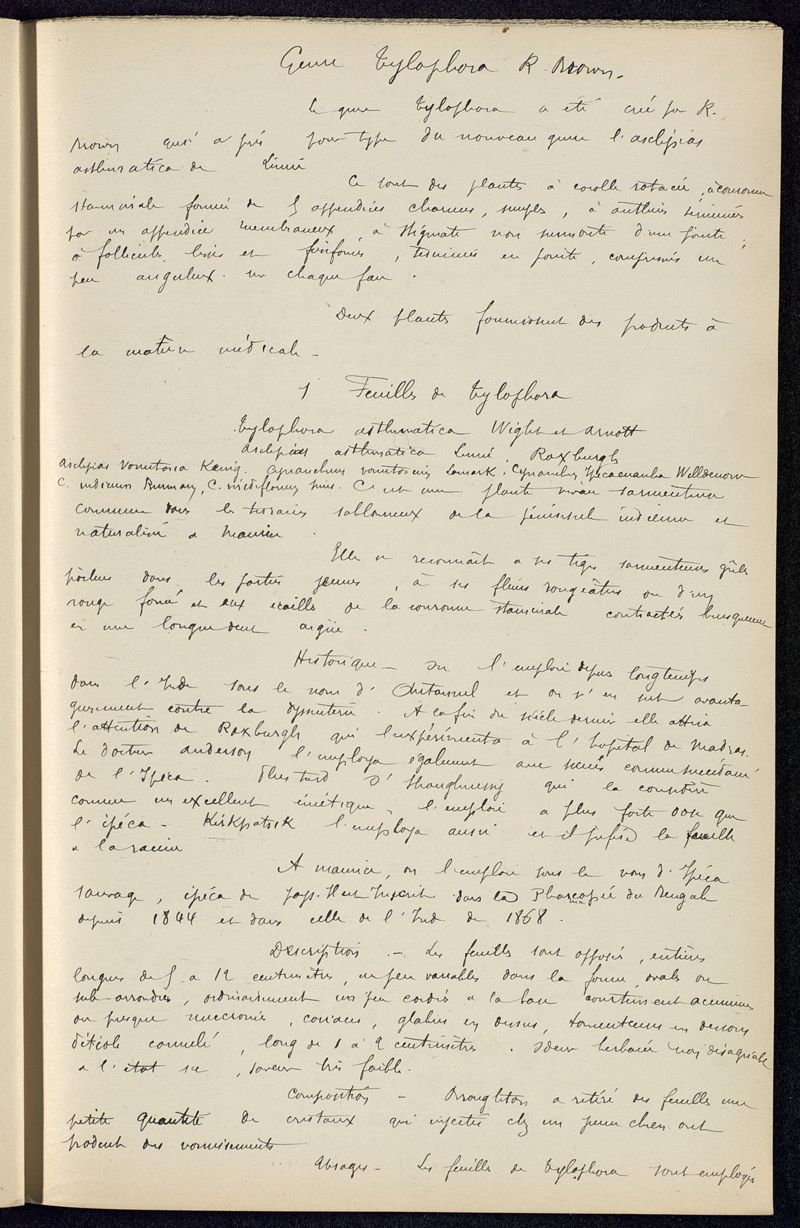 Genre Tylophora R. Brown.
Le genre Tylophora a été créé par R.
Brown qui a pris pour type du nouveau genre l'asclépias
asthmatica de Linné
Ce sont des plantes à corolle rotacée, à couronne
staminale formée de 5 appendices charnus, simples, à anthères terminées
par un appendice membraneux, à stigmate non surmonté d'une pointe,
à follicules lisses et fusiformes, terminés en pointe, comprimés un
peu anguleux sur chaque face.
Deux plantes fournissent des produits à
la matière médicale -
1 Feuilles de Tylophora
Tylophora asthmatica Wight et Arnott
asclepias asthmatica Linné, Roxburgh
Asclepias vomitoria Kœnig. Cynanchum vomitorium Lamark. Cynanchum Ipecacuanha Willdenow
C. indicum Burmann, C. viridiflorum Sims. C'est une plante vivace sarmenteuse
commune dans les terrains sablonneux de la péninsule indienne et
naturalisé à Maurice.
Elle se reconnait à ses tiges sarmenteuses grêles
poilues dans les parties jeunes, à ses fleurs rougeâtres ou d'un
rouge foncé et aux écailles de la couronne staminale contractées brusquement
en une longue dent aigüe.
Historique - On l'emploie depuis longtemps
dans l'Inde sous le nom d' et on s'en sert avanta-
geusement contre la dyssenterie. A la fin du siècle dernier elle attira
l'attention de Roxburgh qui l'expérimenta à l'hôpital de Madras.
Le docteur Anderson l'employa également avec succès comme succédané
de l'Ipéca. Plus tard O'Shaughnessy qui la considère
comme un excellent émétique, l'emploie à plus forte dose que
l'ipéca - Kirkpatrick l'employa aussi et il préfère la feuille
à la racine
A Maurice, on l'emploie sous le nom d'Ipéca
sauvage, ipéca de pays. Il est inscrit dans la Pharmacopée du Bengale
depuis 1844 et dans celle de l'Inde de 1868.
Description. - Les feuilles sont opposées, entières
longues de 5 à 12 centimètres, un peu variables dans la forme, ovales ou
sub-arrondies, ordinairement un peu cordées à la base courtement acuminées
ou presque mucronées, coriaces, glabres en dessus, tomenteuses en dessous
Pétiole cannelé, long de 1 à 2 centimètres. Odeur herbacée non désagréable
à l'état sec, saveur très faible.
Composition - Broughton a retiré des feuilles une
petite quantité de cristaux qui injectés chez un jeune chien ont
produit des vomissements
Usages - Les feuilles de Tylophora sont employés